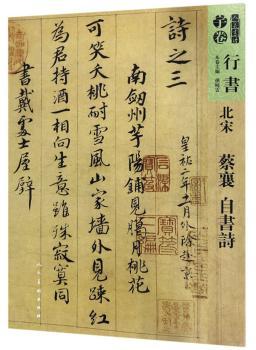 行書
北宋
蔡襄 自書詩
詩之三
皇祐二年十一月外除赴京
南劔州芋陽鋪見臘月桃花
可笑夭桃耐雪風山家墻外見踈紅
為君持酒一相向生意雖殊寂寞同
書戴處士屋壁